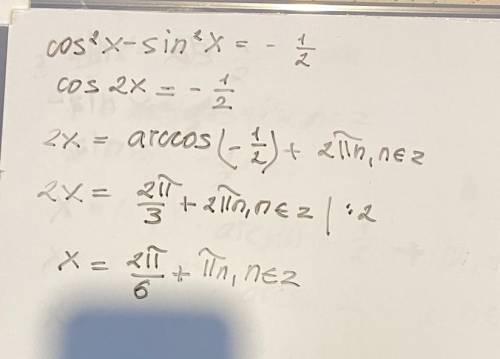 cos²x-sin²x = - 1/2
cos 2x = - 1/2
2x = arccos(-1/2) + 2πn, n∈z
2x = 2π/3 + 2πn, n∈z | :2
x = 2π/6 + πn, n∈z